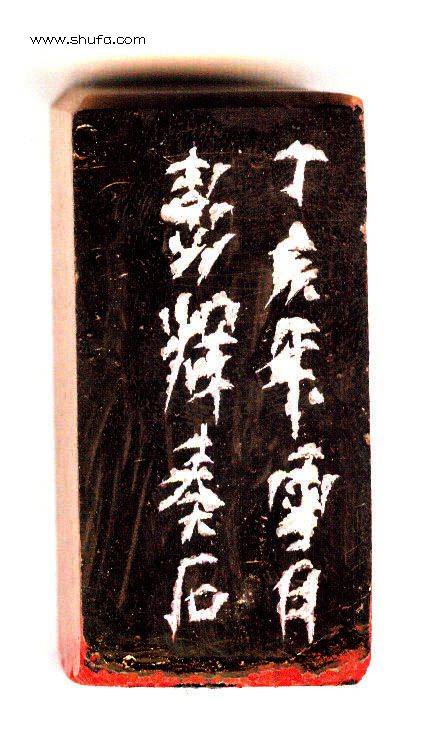 www.shufa.com
丁亥年雪月
彭辉奏石